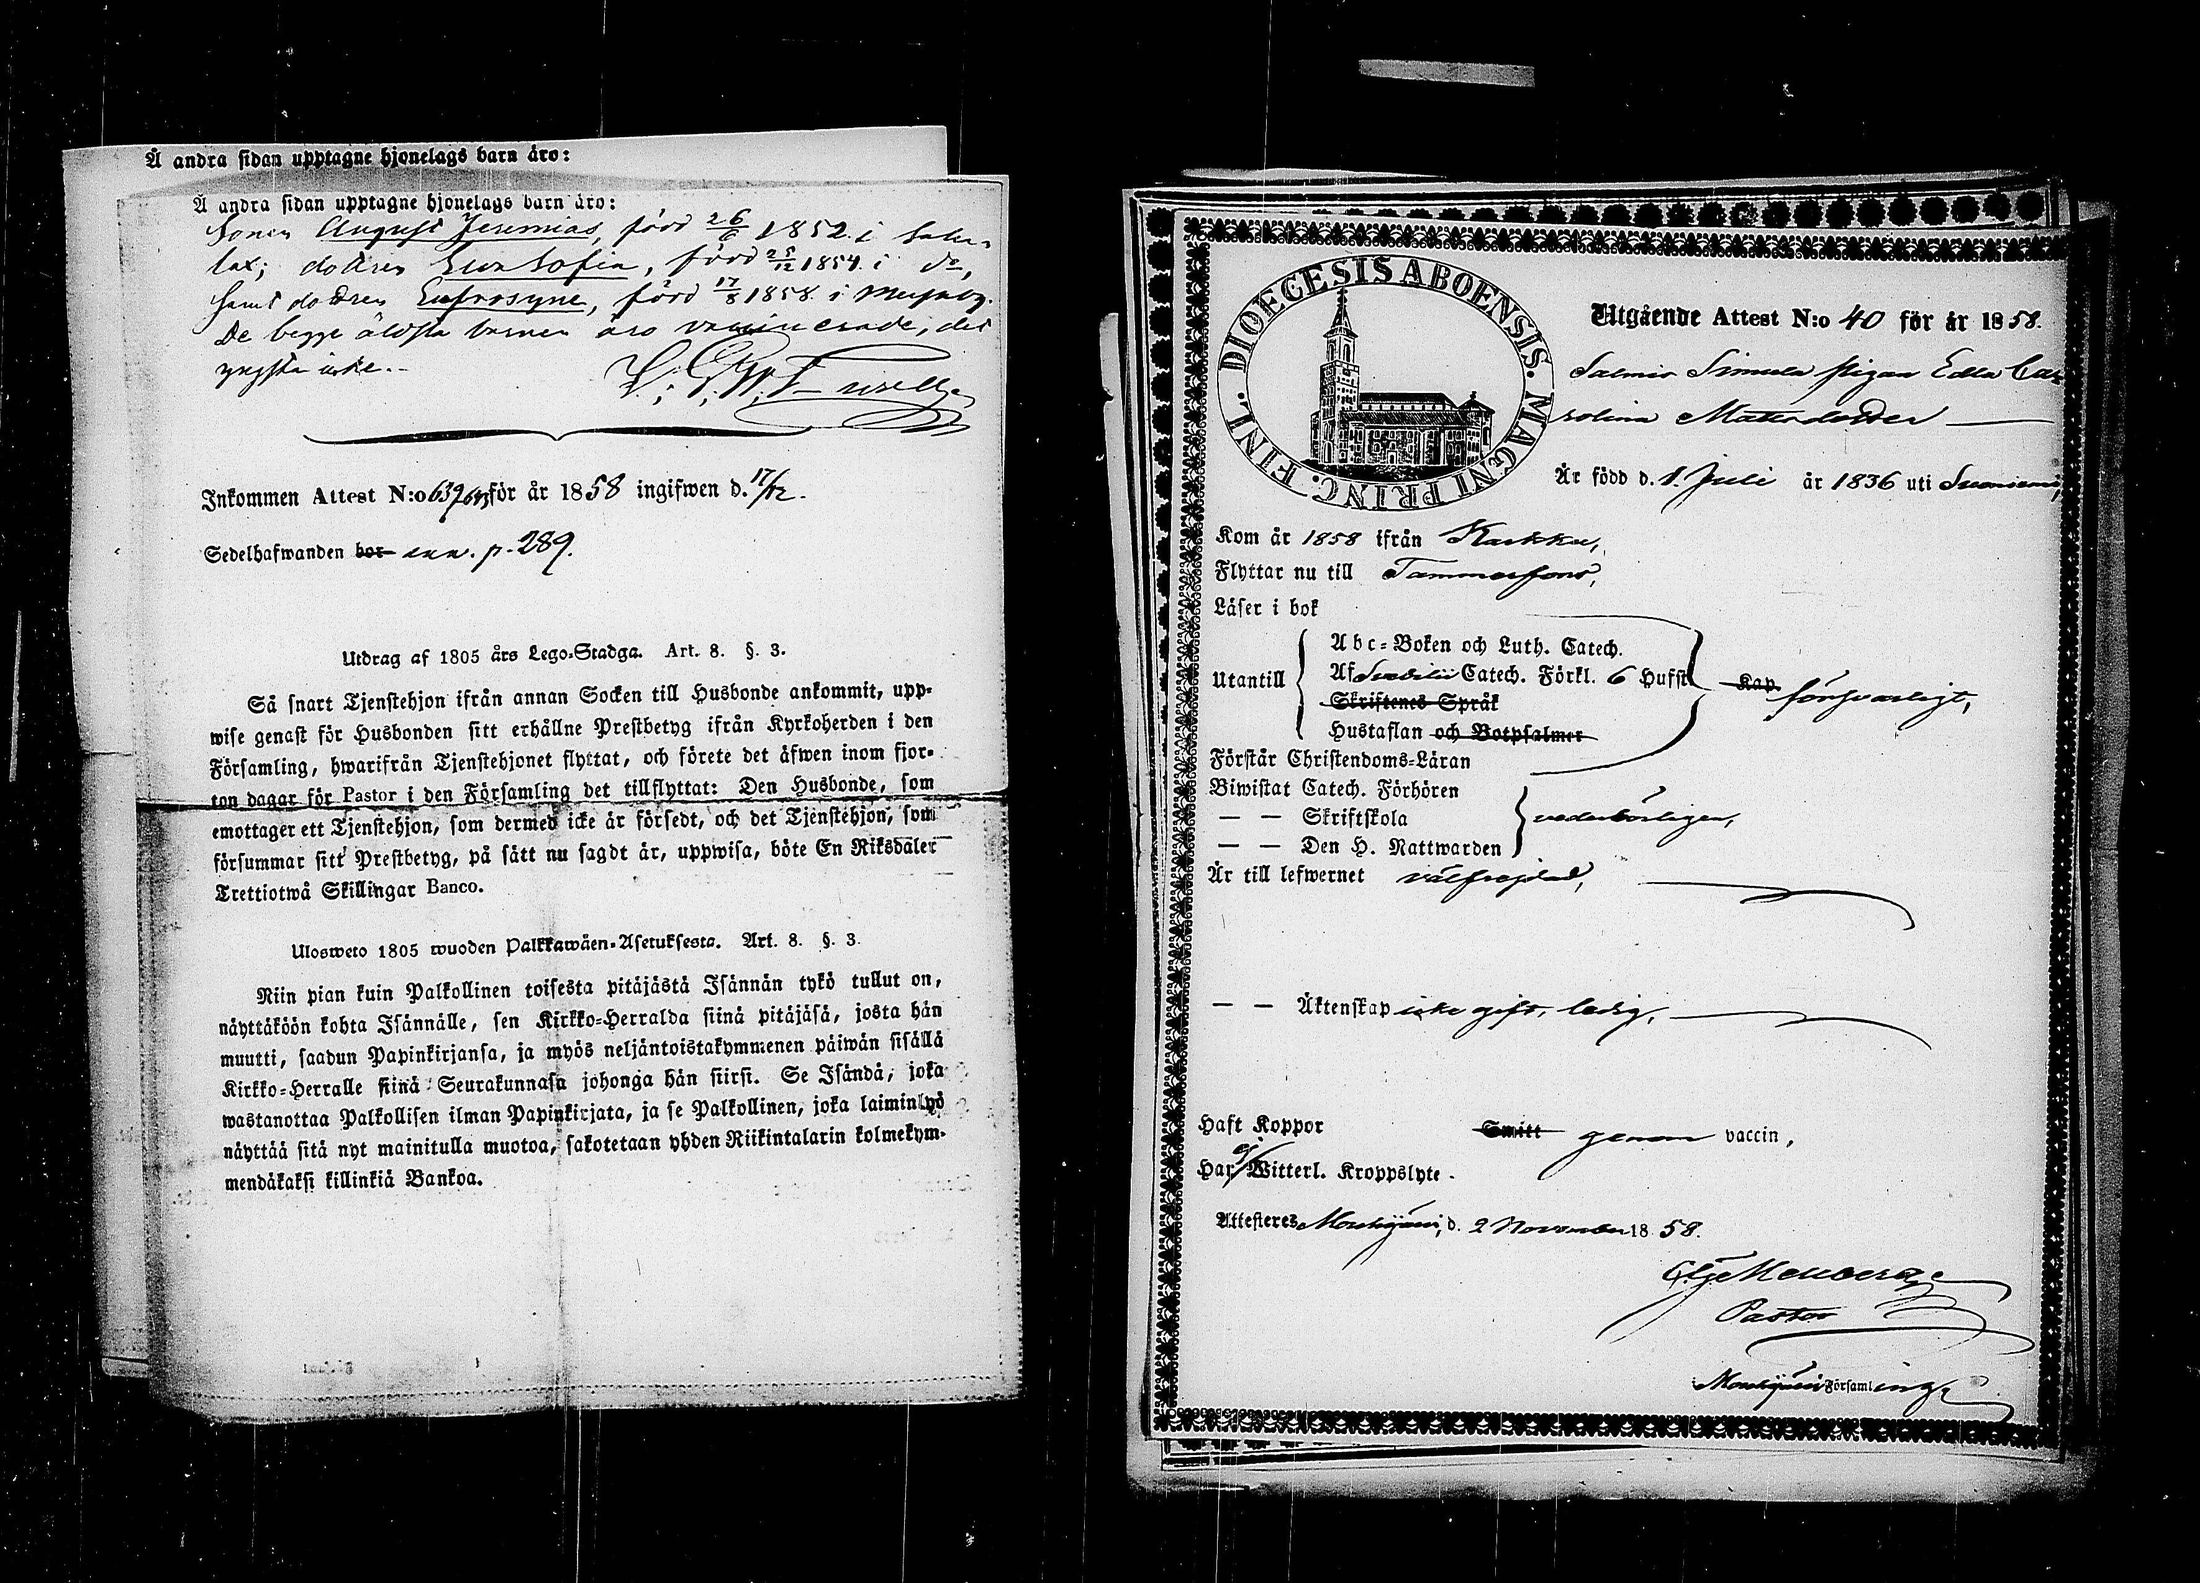 Å andra sidan upptagne hjonelags barn äro:
Å andra sidan upptagne hjonelags barn äro:
Sonen August Jeremias, född 26/6 1852 i Sala-
lax; dottren Eva Sofia, född 25/12 1854 i do,
samt dottren Eufrosyne, född 17/8 1858 i
De begge äldsta barnen äro vaccinerade, det
yngsta icke.-
Inkommen Attest N:o 639 för år 1858 ingifwen d. 17/12.
Sedelhafwanden bor inn. p. 289.
Utdrag af 1805 års Lego-Stadga. Art. 8. §. 3.
Så snart Tjenstehjon ifrån annan Socken till Husbonde ankommit, upp-
wise genast för Husbonden sitt erhållne Prestbetyg ifrån Kyrkoherden i den
Församling, hwarifrån Tjenstehjonet flyttat, och förete det äfwen inom fjor-
ton dagar för Pastor i den Församling det tillflyttat: Den Husbonde, som
emottager ett Tjenstehjon, som dermed icke är försedt, och det Tjenstehjon, som
försummar sitt Prestbetyg, på sätt nu sagdt är, uppwisa, böte En Riksdaler
Trettiotwå Skillingar Banco.
Ulosweto 1805 wuoden Palkkawäen-Asetuksesta. Art. 8. §. 3.
Niin pian kuin Palkollinen toisesta pitäjästä Isännän tykö tullut on,
näyttäköön kohta Isännälle, sen Kirkko-Herralda siinä pitäjäsä, josta hän
muutti, saadun Papinkirjansa, ja myös neljäntoistakymmenen päiwän sisällä
Kirkko-Herralle siinä Seurakunnasa johonga hän siirsi. Se Isändä, joka
wastanottaa Palkollisen ilman Papinkirjata, ja se Palkollinen, joka laiminlyö
näyttää sitä nyt mainitulla muotoa, sakotetaan yhden Riikintalarin kolmekym-
mendäkaksi killinkiä Bankoa.
DIOECESIS ABOENSIS. MAGNI PRINC. FINL.
Utgående Attest N:o 40 för år 1858.
Salmis Simula pigan Edla Ca-
rolina Mattsdotter
Är född d. 1 Juli år 1836 uti Suoniemi,
Kom år 1858 ifrån Karkku,
Flyttar nu till Tammerfors,
Läser i bok
Utantill
Abc-Boken och Luth. Catech.
Af Svebilii Catech. Förkl. 6 Hufst. Kap.
försvarligt,
Skriftenes Språk
Hustaflan och Botpsalmer
Förstår Christendoms-Läran
Biwistat Catech. Förhören
— — Skriftskola
vederbörligen,
— — Den H. Nattwarden
Är till lefwernet välfrejdad,
— — Äktenskap icke gift, ledig,
Haft Koppor Smitt genom vaccin,
Har ej Witterl. Kroppslyte.
Attesteres Mouhijärvi, d. 2 November 1858.
Pastor
Mouhijärvi Församling